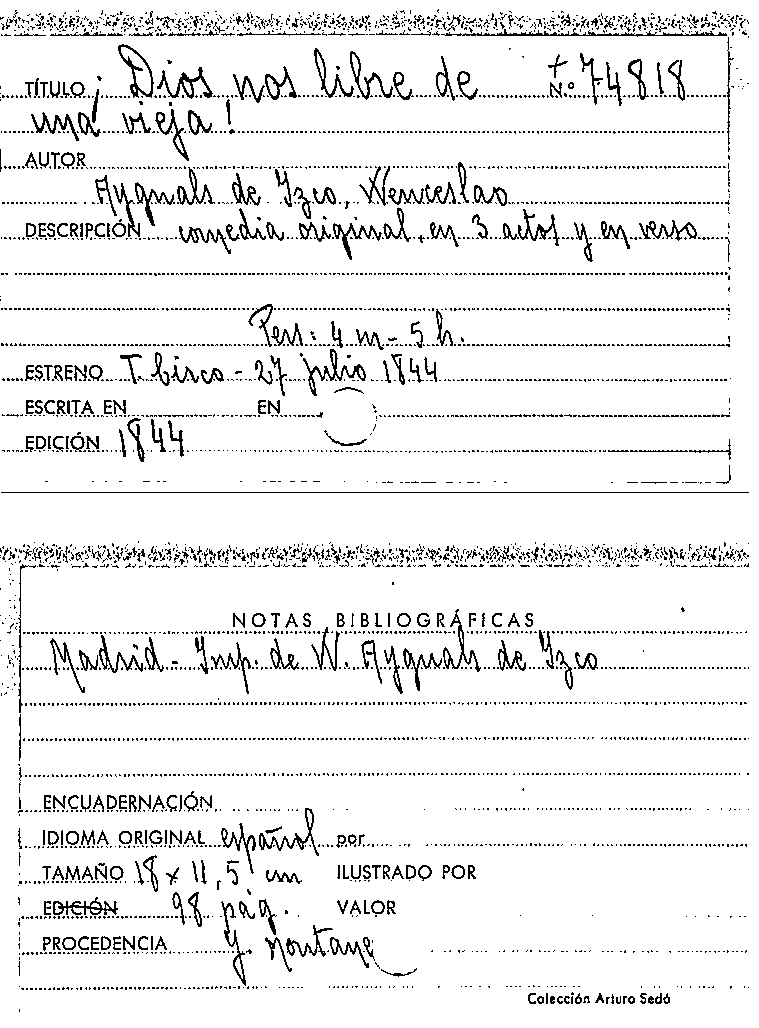 TÍTULO ¡Dios nos libre de + N.º 74818
una vieja!
AUTOR
Ayguals de Izco, Wenceslao
DESCRIPCIÓN comedia original, en 3 actos y en verso
Pers: 4 m - 5 h.
ESTRENO T. Circo - 27 julio 1844
ESCRITA EN EN
EDICIÓN 1844
NOTAS BIBLIOGRÁFICAS
Madrid - Imp. de W. Ayguals de Izco
ENCUADERNACIÓN
IDIOMA ORIGINAL español por
TAMAÑO 18 x 11,5 cm ILUSTRADO POR
EDICIÓN 98 pág. VALOR
PROCEDENCIA
Colección Arturo Sedó